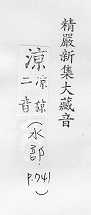 精嚴新集大藏音
涼 涼諒二音 (水部 p.741)